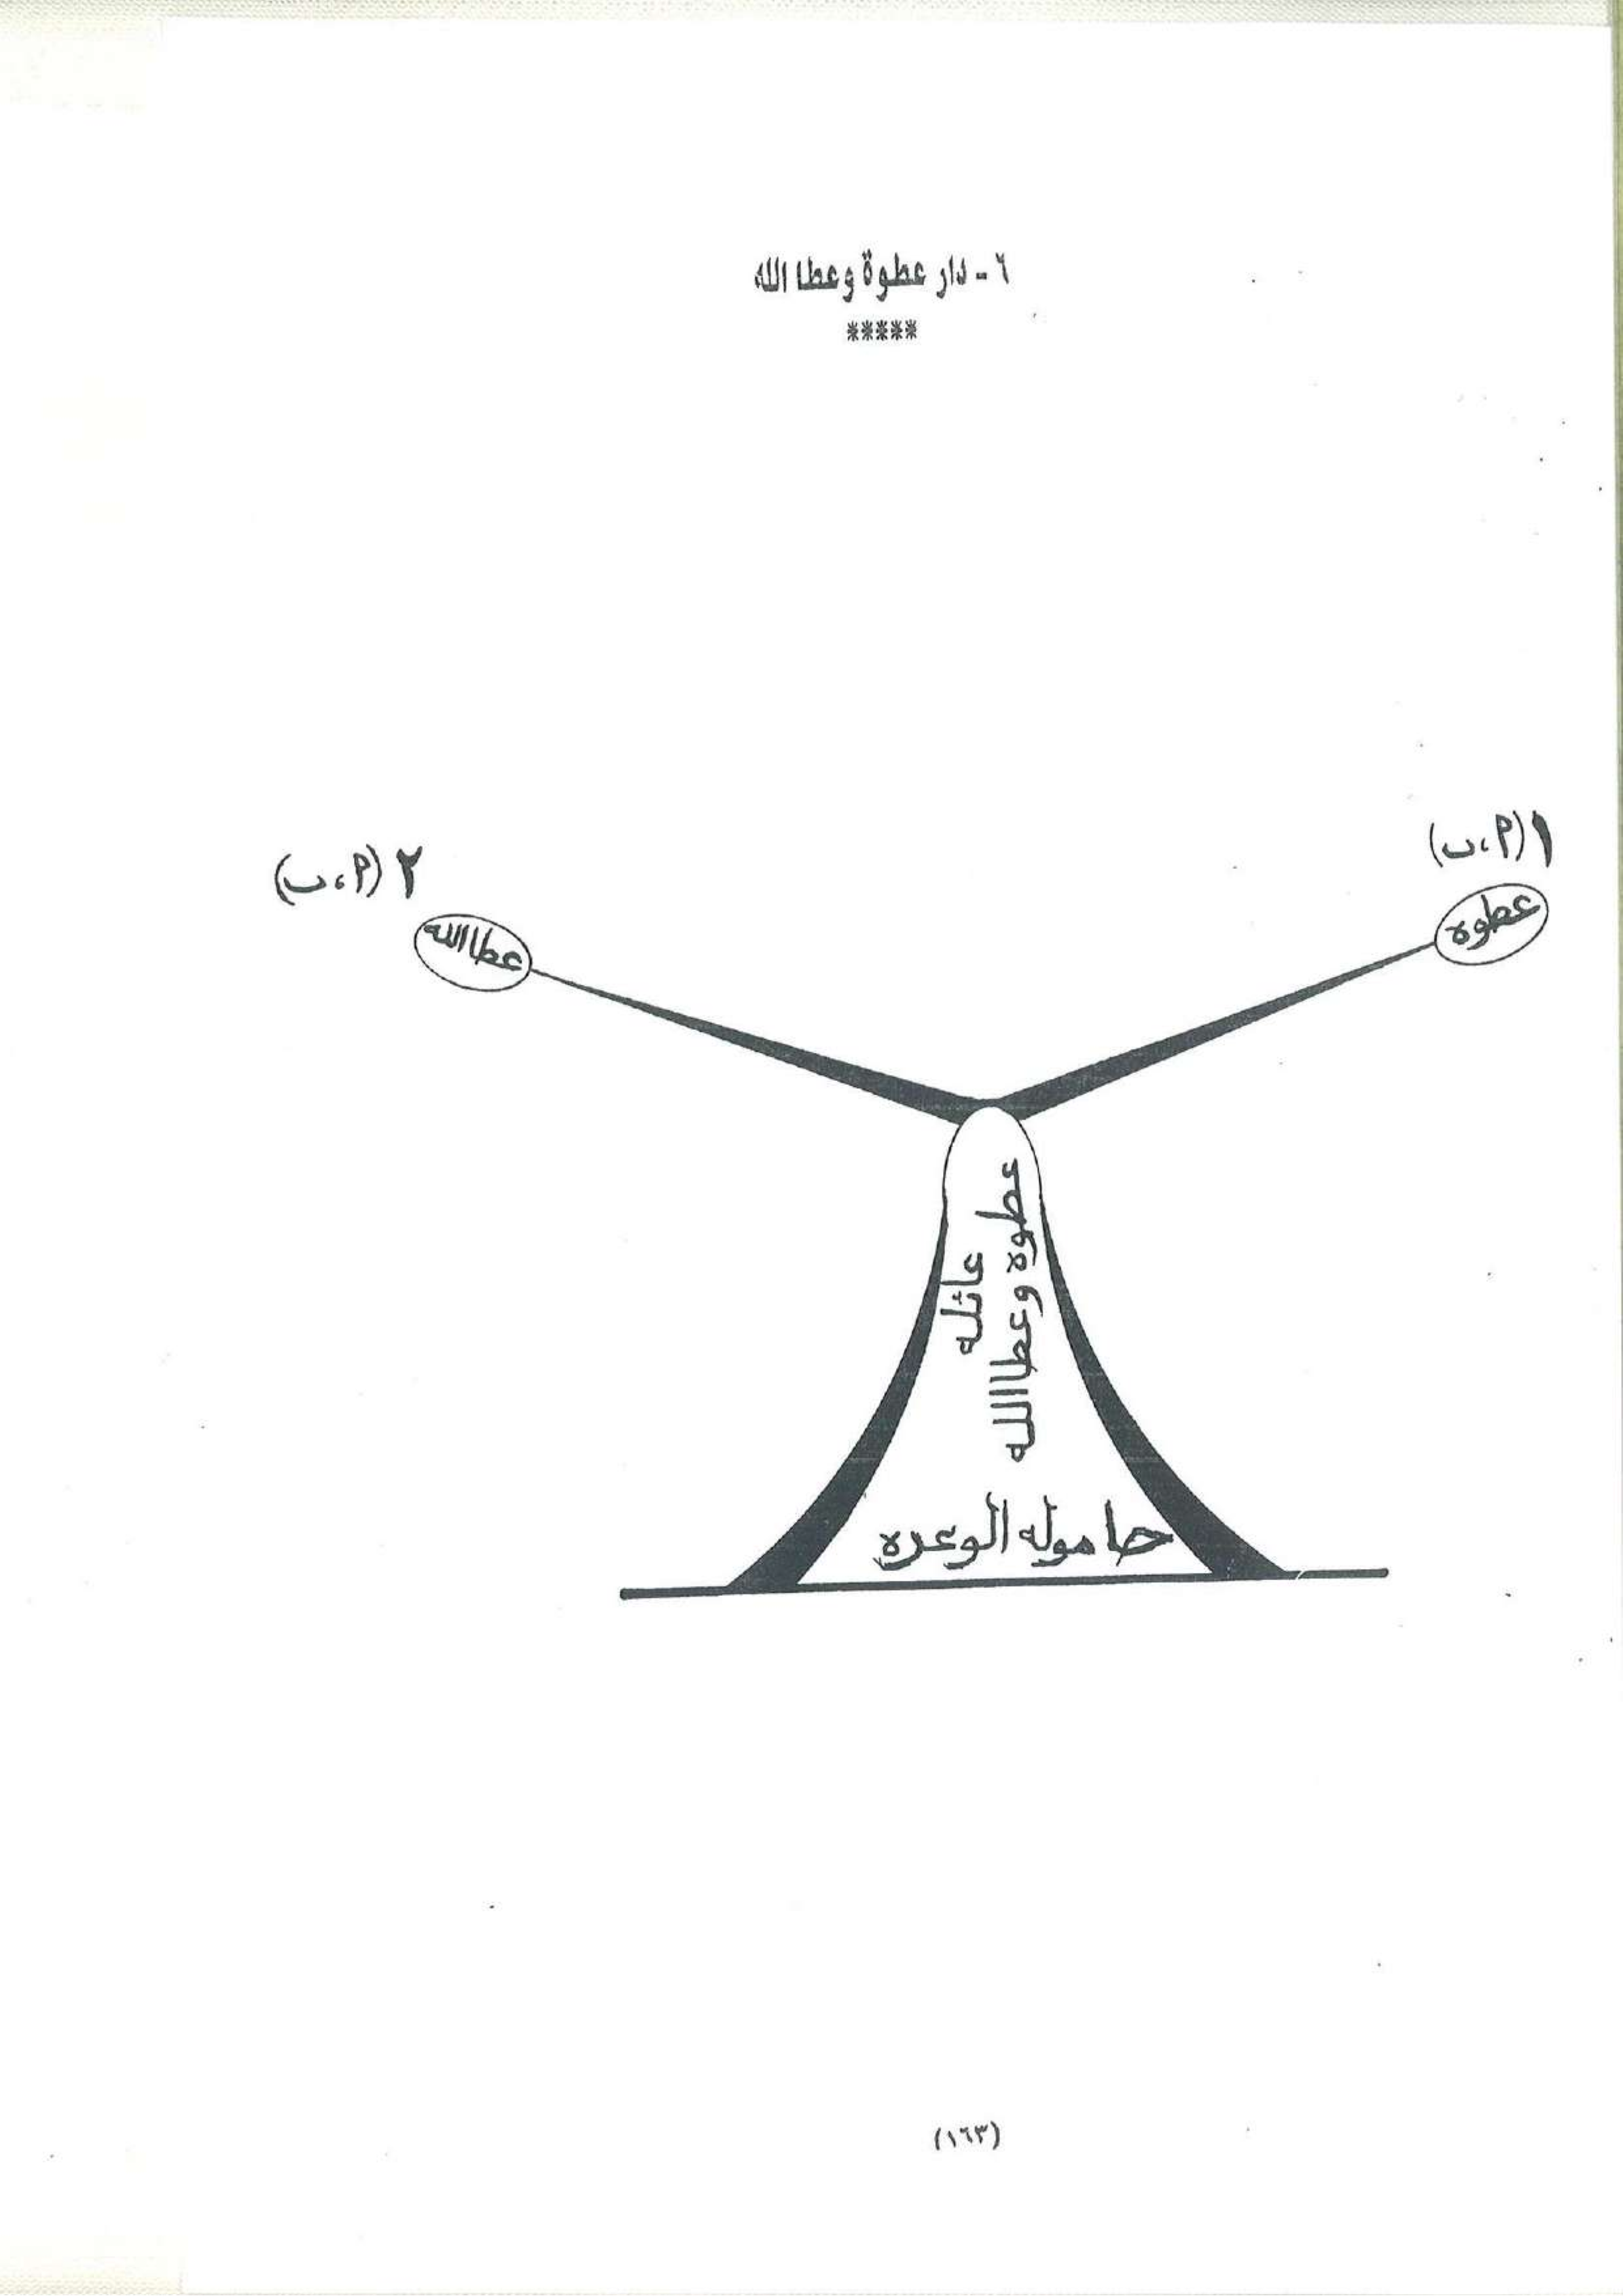 ٦ - دار عطوة وعطا الله
*****
١ (أ، ب)
عطوه
٢ (أ، ب)
عطاالله
عائله
عطوه وعطاالله
حاموله الوعره
(١٦٣)